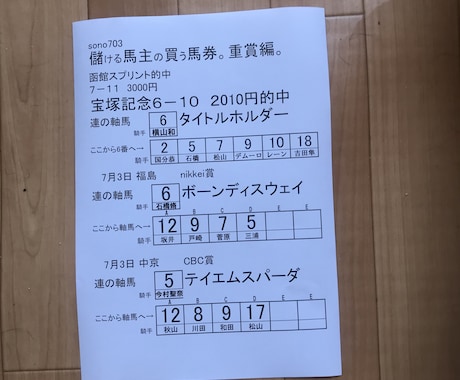 sono703
儲ける馬主の買う馬券。重賞編。
函館スプリント的中
7－11 3000円
宝塚記念6－10 2010円的中
連の軸馬 6 タイトルホルダー
騎手 横山和
ここから6番へ→ 2 5 7 9 10 18
騎手 国分恭 石橋 松山 デムーロ レーン 吉田隼
7月3日 福島 nikkei賞
連の軸馬 6 ボーンディスウェイ
騎手 石橋脩
A B C D E E
ここから軸馬へ→ 12 9 7 5
騎手 坂井 戸崎 菅原 三浦
7月3日 中京 CBC賞
連の軸馬 5 テイエムスパーダ
騎手 今村聖奈
A B C D E E
ここから軸馬へ→ 12 8 9 17
騎手 秋山 川田 和田 松山